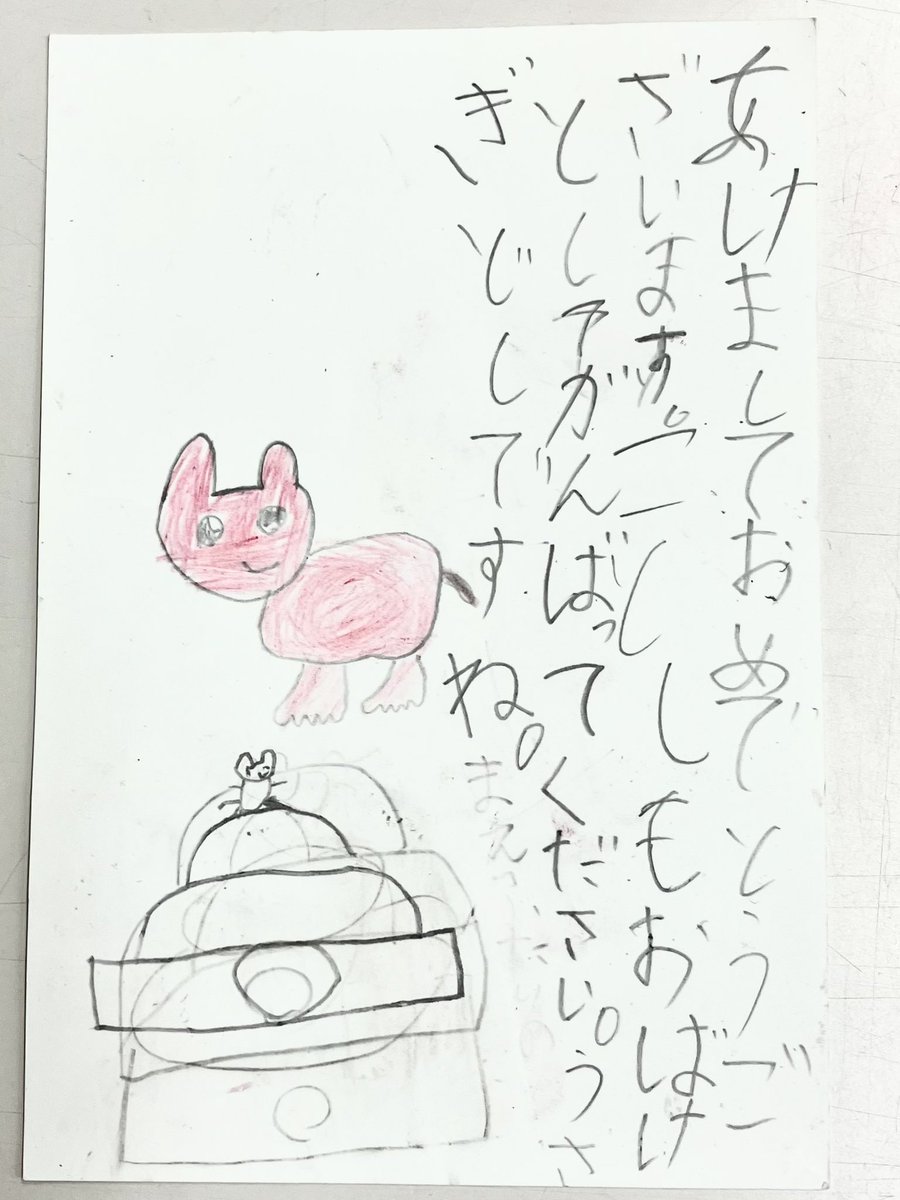 あけましておめでとうご
ざいます。ことしもおばけ
としてがんばってください。うさ
ぎどしですね。